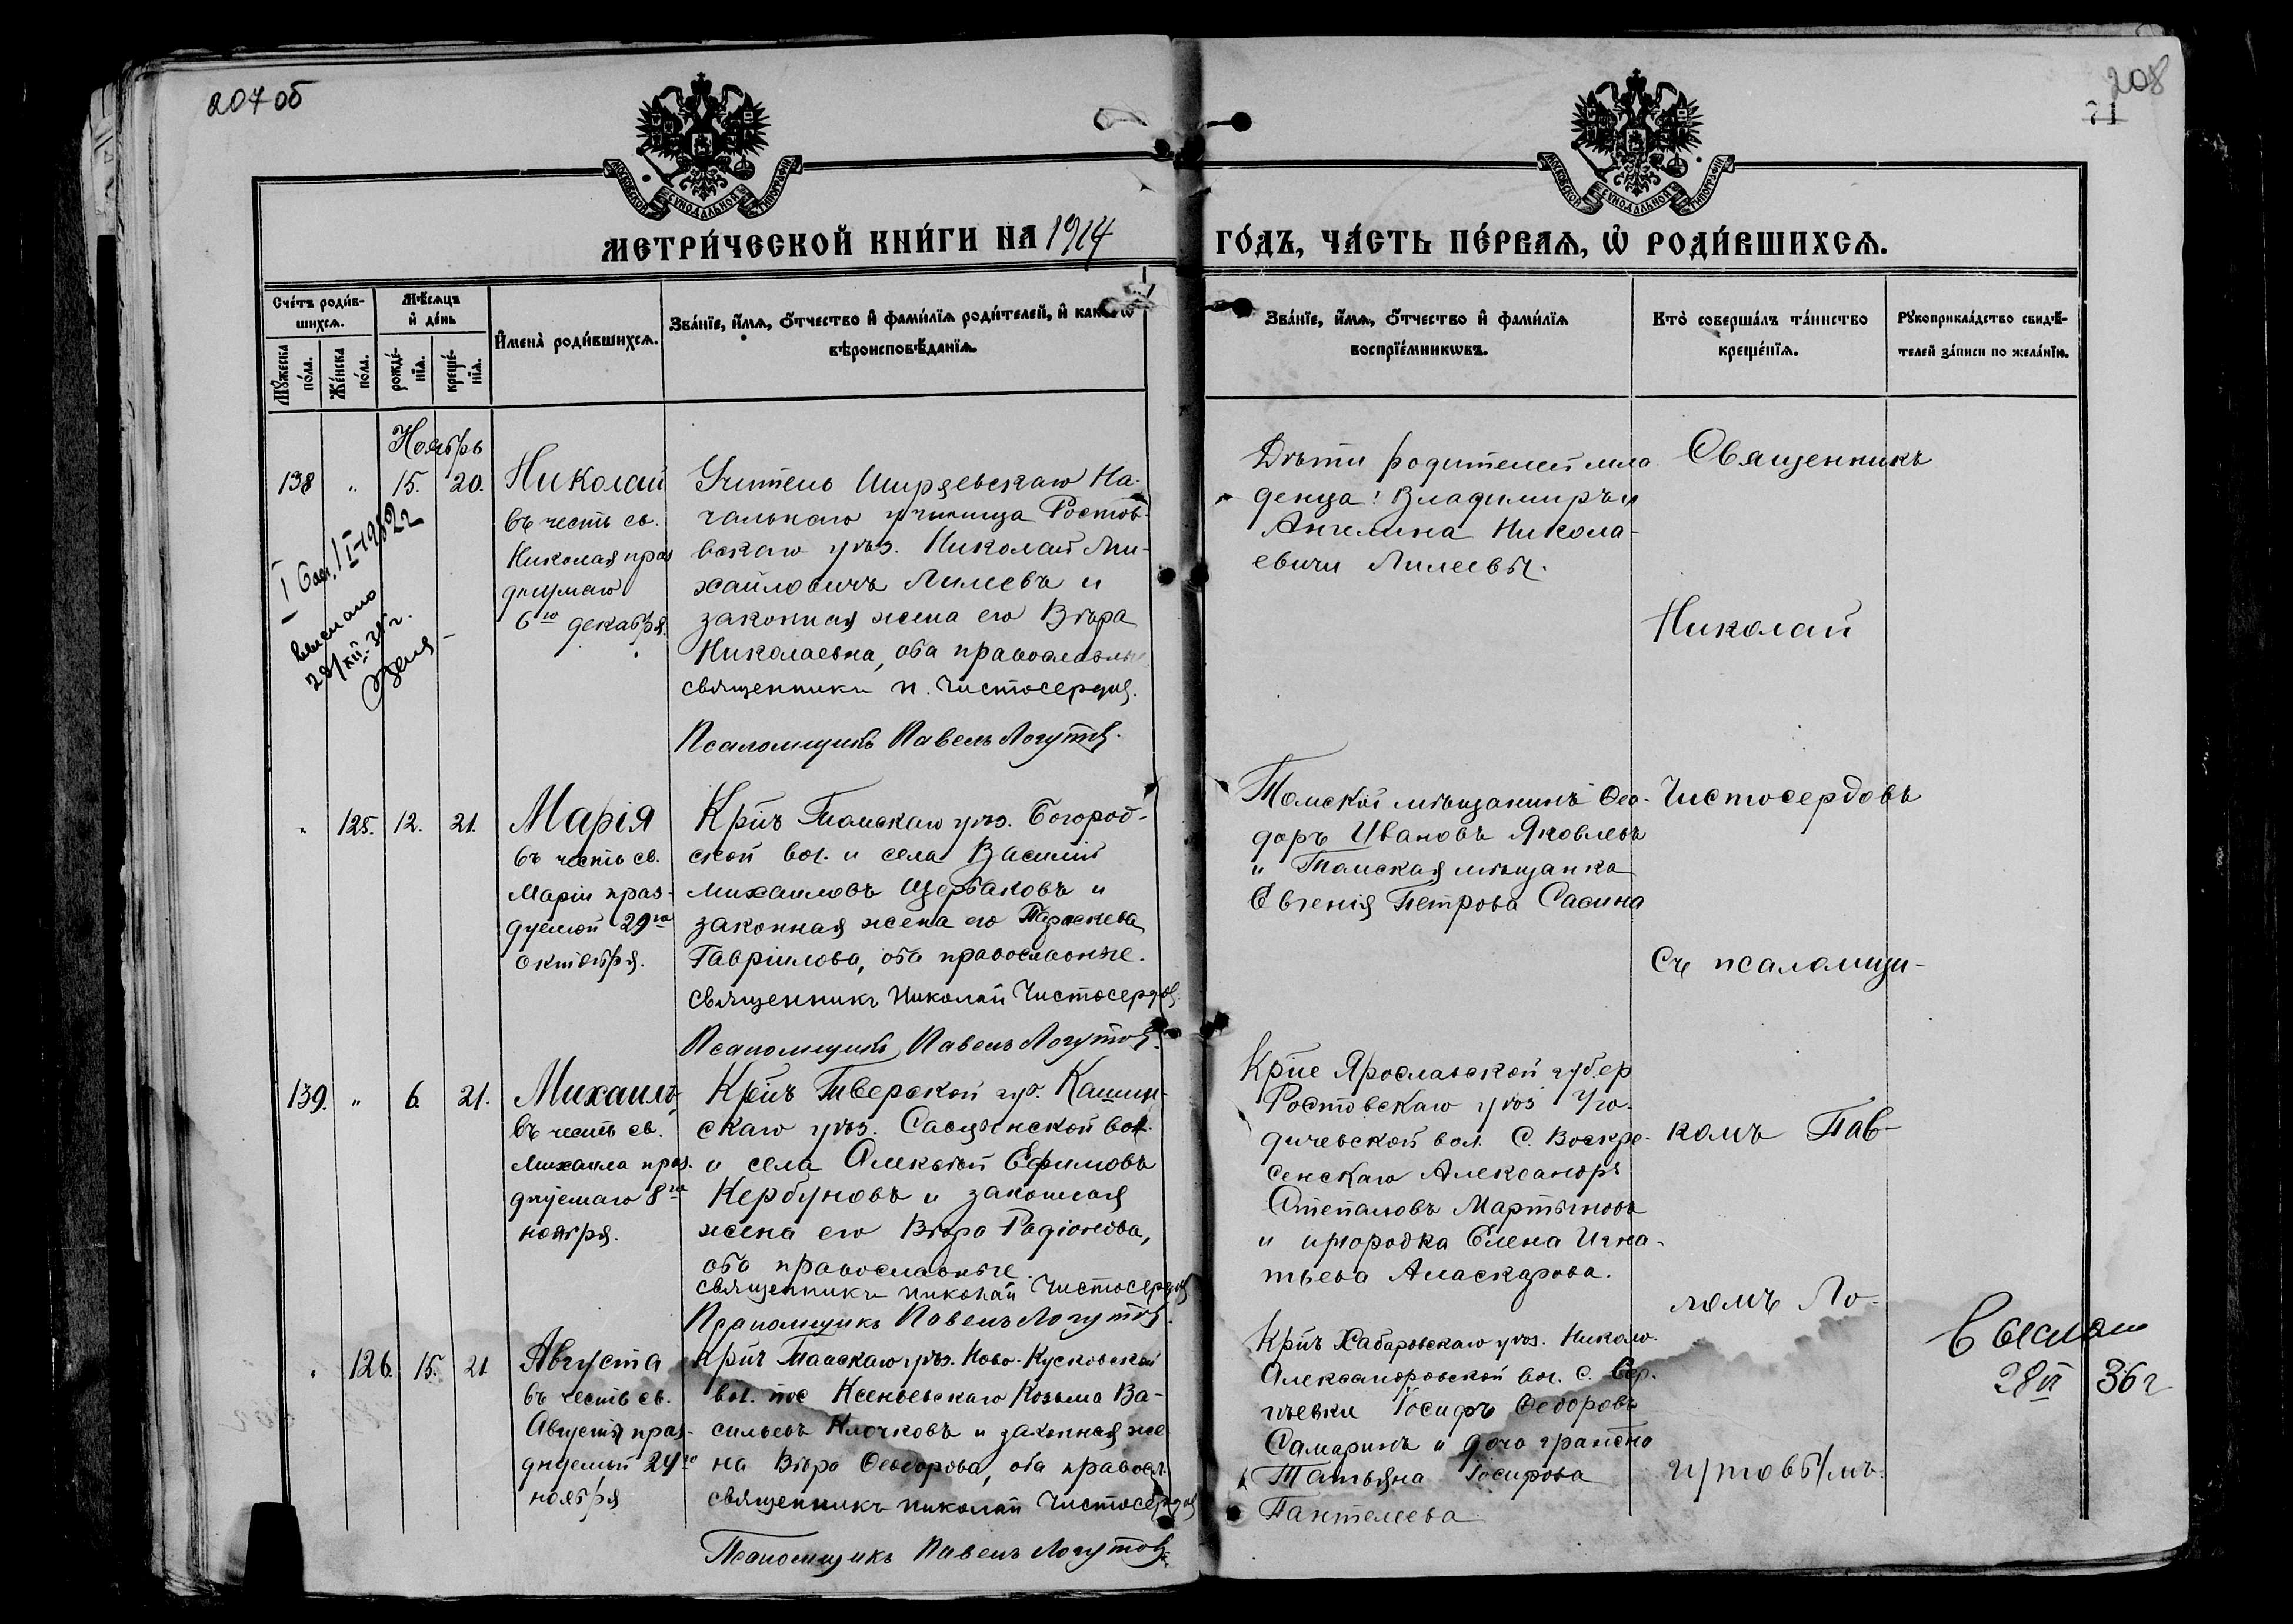 207 об
208
71
МОСКОВСКОЙ СѴНОДАЛЬНОЙ ТИПОГРАФІИ
МОСКОВСКОЙ СѴНОДАЛЬНОЙ ТИПОГРАФІИ
МЕТРИ́ЧЕСКОЙ КНИ́ГИ НА 1914
ГО́ДЪ, ЧА́СТЬ ПЕ́РВАѦ, Ѡ҆ РОДИ́ВШИХСѦ.
Сче́тъ роди́в-
шихсѧ.
Мѣ́сѧцъ
и҆ де́нь
Мꙋ́жеска
по́ла.
Же́нска
по́ла.
рожде́-
нїѧ.
креще́-
нїѧ.
И҆мена̀ роди́вшихсѧ.
Зва́нїе, и҆́мѧ, ѻ҆́тчество и҆ фами́лїѧ роди́телей, и҆
вѣроисповѣ́данїѧ.
Зва́нїе, и҆́мѧ, ѻ҆́тчество и҆ фами́лїѧ
воспрїе́мникѡвъ.
Кто̀ соверша́лъ та́инство
креще́нїѧ.
Рꙋкоприкла́дство свидѣ́-
телей за́писи по жела́нїю.
Ноябрь
138 " 15. 20.
Николай
въ честь св.
Николая праз
днуемаго
6го декабря.
Учитель Ширяевскаго На-
чальнаго училища Ростов-
вскаго уѣз. Николай Ми-
хайловичъ Лилеевъ и
законная жена его Вѣра
Николаевна, оба православные
священникъ Н. Чистосердов.
Псаломщикъ Павелъ Логутов.
Дѣти родителей мла
денца: Владимиръ и
Ангелина Никола-
евичи Лилеевы.
Священникъ
Николай
28/XII-
" 125. 12. 21.
Марія
въ честь св.
Маріи праз-
дуемой 29го
октября.
Кр҃нъ Томскаго уѣз. Богород-
ской вол. и села Василій
Михаиловъ Щербаковъ и
законная жена его Параскева
Гавріилова, оба православные.
священникъ Николай Чистосердов.
Псаломщикъ Павелъ Логутов.
Томскій мѣщанинъ Ѳео-
доръ Ивановъ Яковлевъ
и Томская мѣщанка
Евгенія Петрова Сасина
Чистосердовъ
съ псаломщи-
139. " 6. 21.
Михаилъ
въ честь св.
Михаила праз.
днуемаго 8го
ноября.
Кр҃нъ Тверской гу. Кашин-
скаго уѣз. Савцынской вол.
и села Алексѣй Ефимовъ
Кербуновъ и законная
жена его Вѣра Радіонова,
оба православные.
священникъ Николай Чистосердов
Псаломщикъ Павелъ Логутов.
Кр҃не Ярославской губер
Ростовскаго уѣз Уго-
дичевской вол. С. Воскре-
сенскаго Александръ
Степановъ Мартыновъ
и инородка Елена Игна-
тьева Аласкарова.
комъ Пав-
ломъ Ло-
" 126. 15. 21.
Августа
въ честь св.
Августы праз-
днуемый 24го
ноября
Кр҃нъ Томскаго уѣз. Ново-Кусковской
вол. пос Ксеньевскаго Козьма Ва-
сильевъ Клочковъ и законная же-
на Вѣра Ѳеодорова, оба правосл.
священникъ Николай Чистосердов
Псаломщикъ Павелъ Логутовъ.
Кр҃нъ Хабаровскаго уѣз. Николо-
Александровской вол. С.
Іосифъ Ѳедоровъ
Самаринъ и дочь
Татьяна Іосифова
Пантелеева
гутовымъ.
Выслан
28 VI 36 г